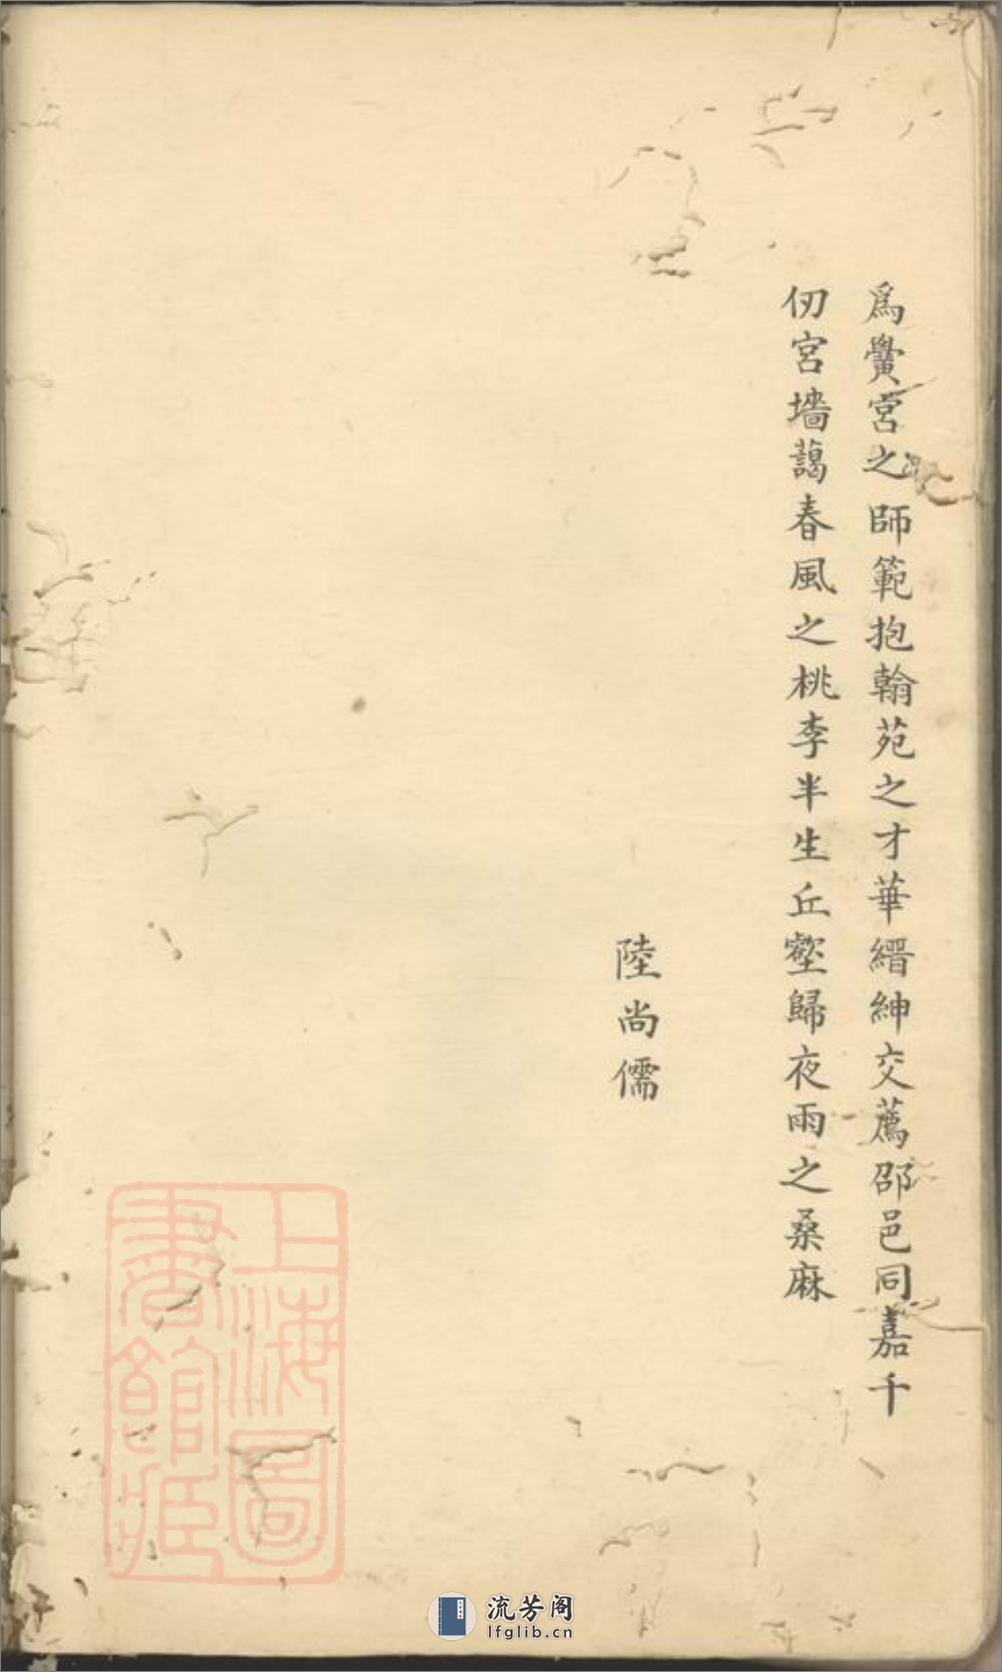 為黌宮之師範抱翰苑之才華縉紳交薦邵邑同嘉千
仞宮墻藹春風之桃李半生丘壑歸夜雨之桑麻
陸尚儒
上海圖
書館藏
流芳阁
lfglib.cn